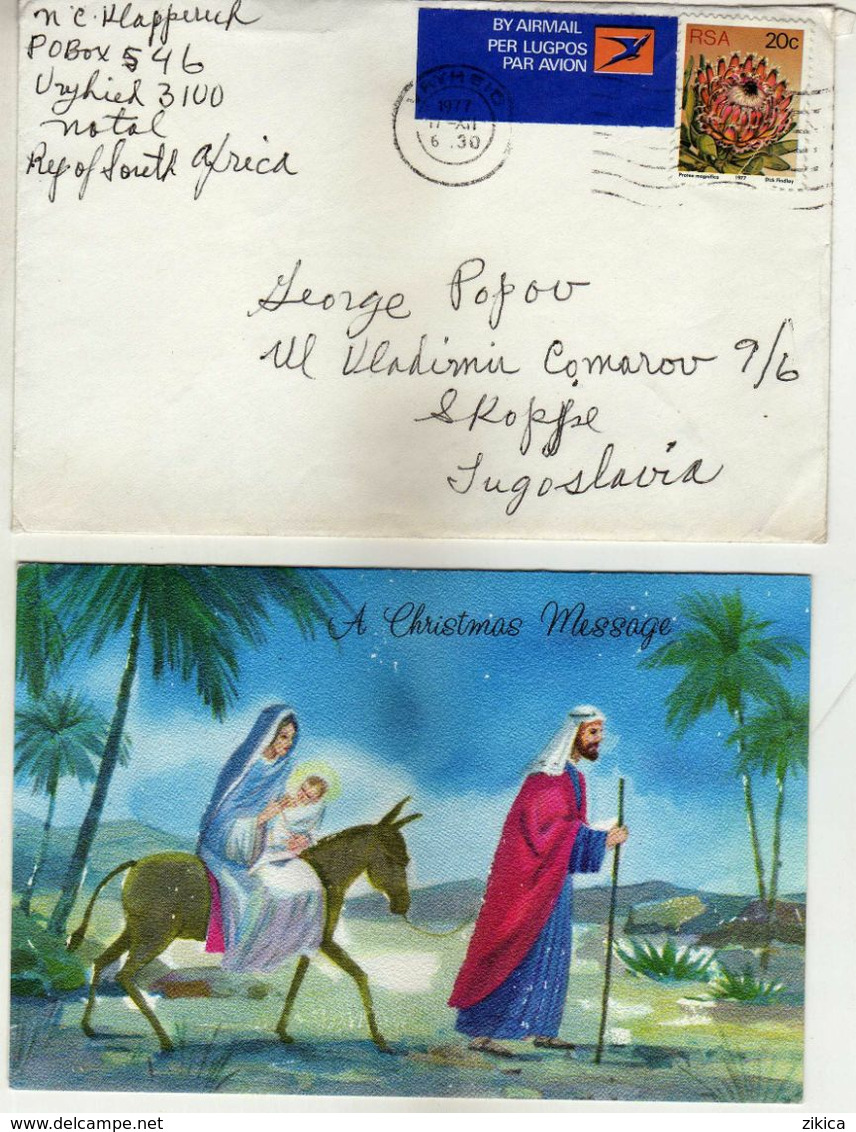 N C Klapperich
POBox 546
Vryhied 3100
Natal
Rep of South Africa
BY AIRMAIL
PER LUGPOS
PAR AVION
RSA 20c
VRYHEID
1977
-XII
6 .30
Protea magnifica 1977 Dick Findlay
George Popov
Ul Vladimir Comarov 9/6
Skopje
Jugoslavia
A Christmas Message
zikica